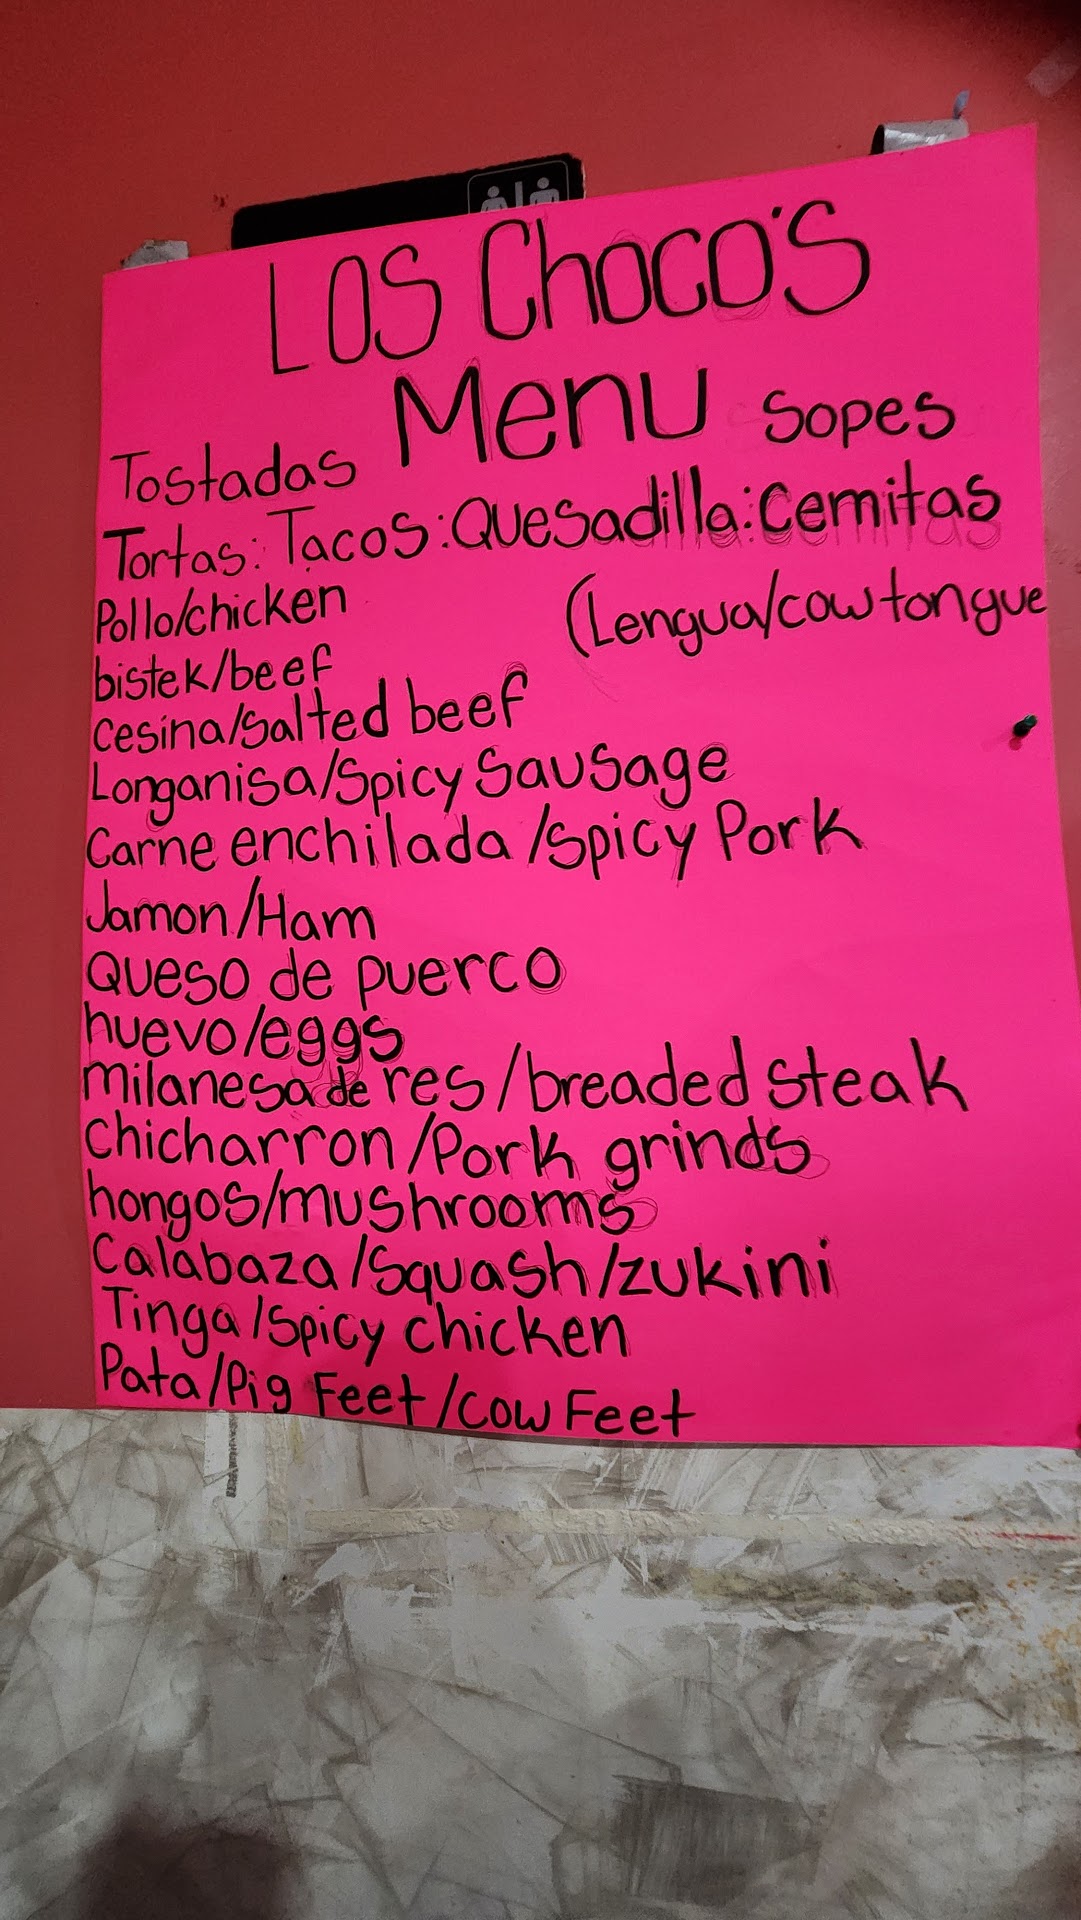 LOS Choco's
Menu
Tostadas
Sopes
Tortas: Tacos: Quesadilla: Cemitas
Pollo/chicken
(Lengua/cow tongue
bistek/beef
Cesina/Salted beef
Longanisa/Spicy Sausage
Carne enchilada/Spicy Pork
Jamon/Ham
Queso de puerco
huevo/eggs
milanesa de res/breaded steak
Chicharron/Pork grinds
hongos/mushrooms
Calabaza/Squash/zukini
Tinga/Spicy chicken
Pata/Pig Feet/cow Feet